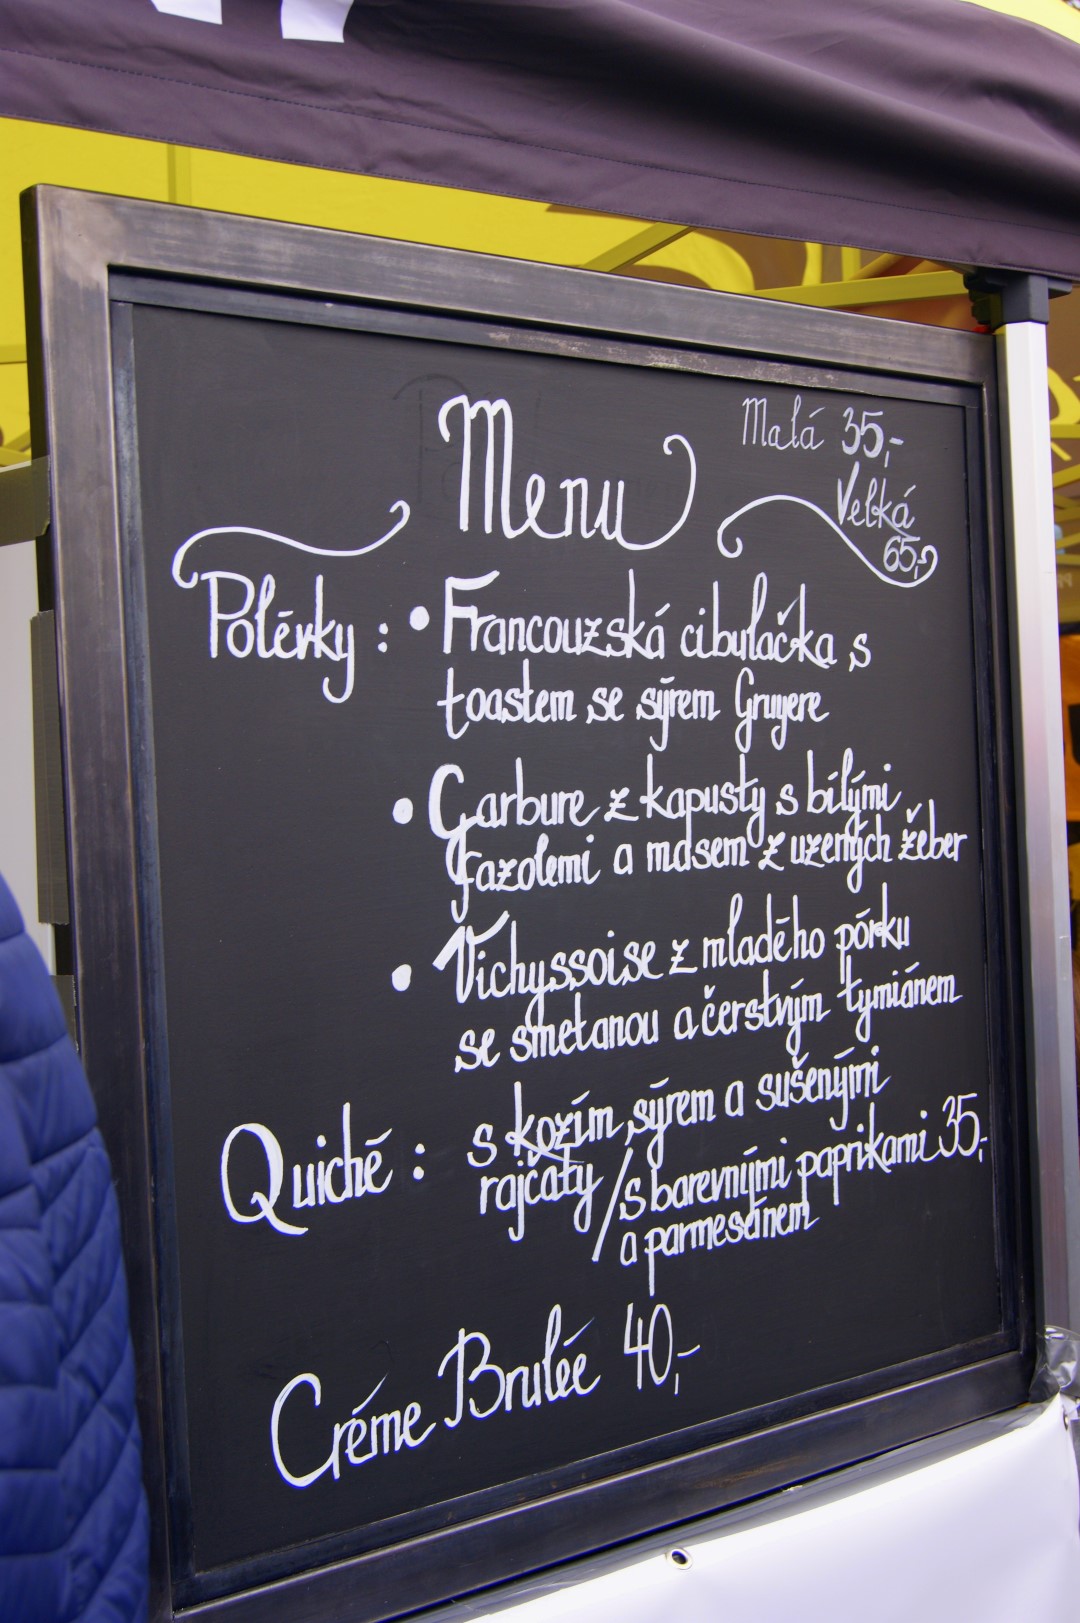 Menu
Malá 35,-
Velká
65,-
Polévky : • Francouzská cibulačka s
toastem se sýrem Gruyere
• Garbure z kapusty s bílými
fazolemi a masem z uzených žeber
• Vichyssoise z mladého pórku
se smetanou a čerstvým tymiánem
Quiché : s kozím sýrem a sušenými
rajčaty / s barevnými paprikami 35,-
a parmesánem
Créme Brulée 40,-